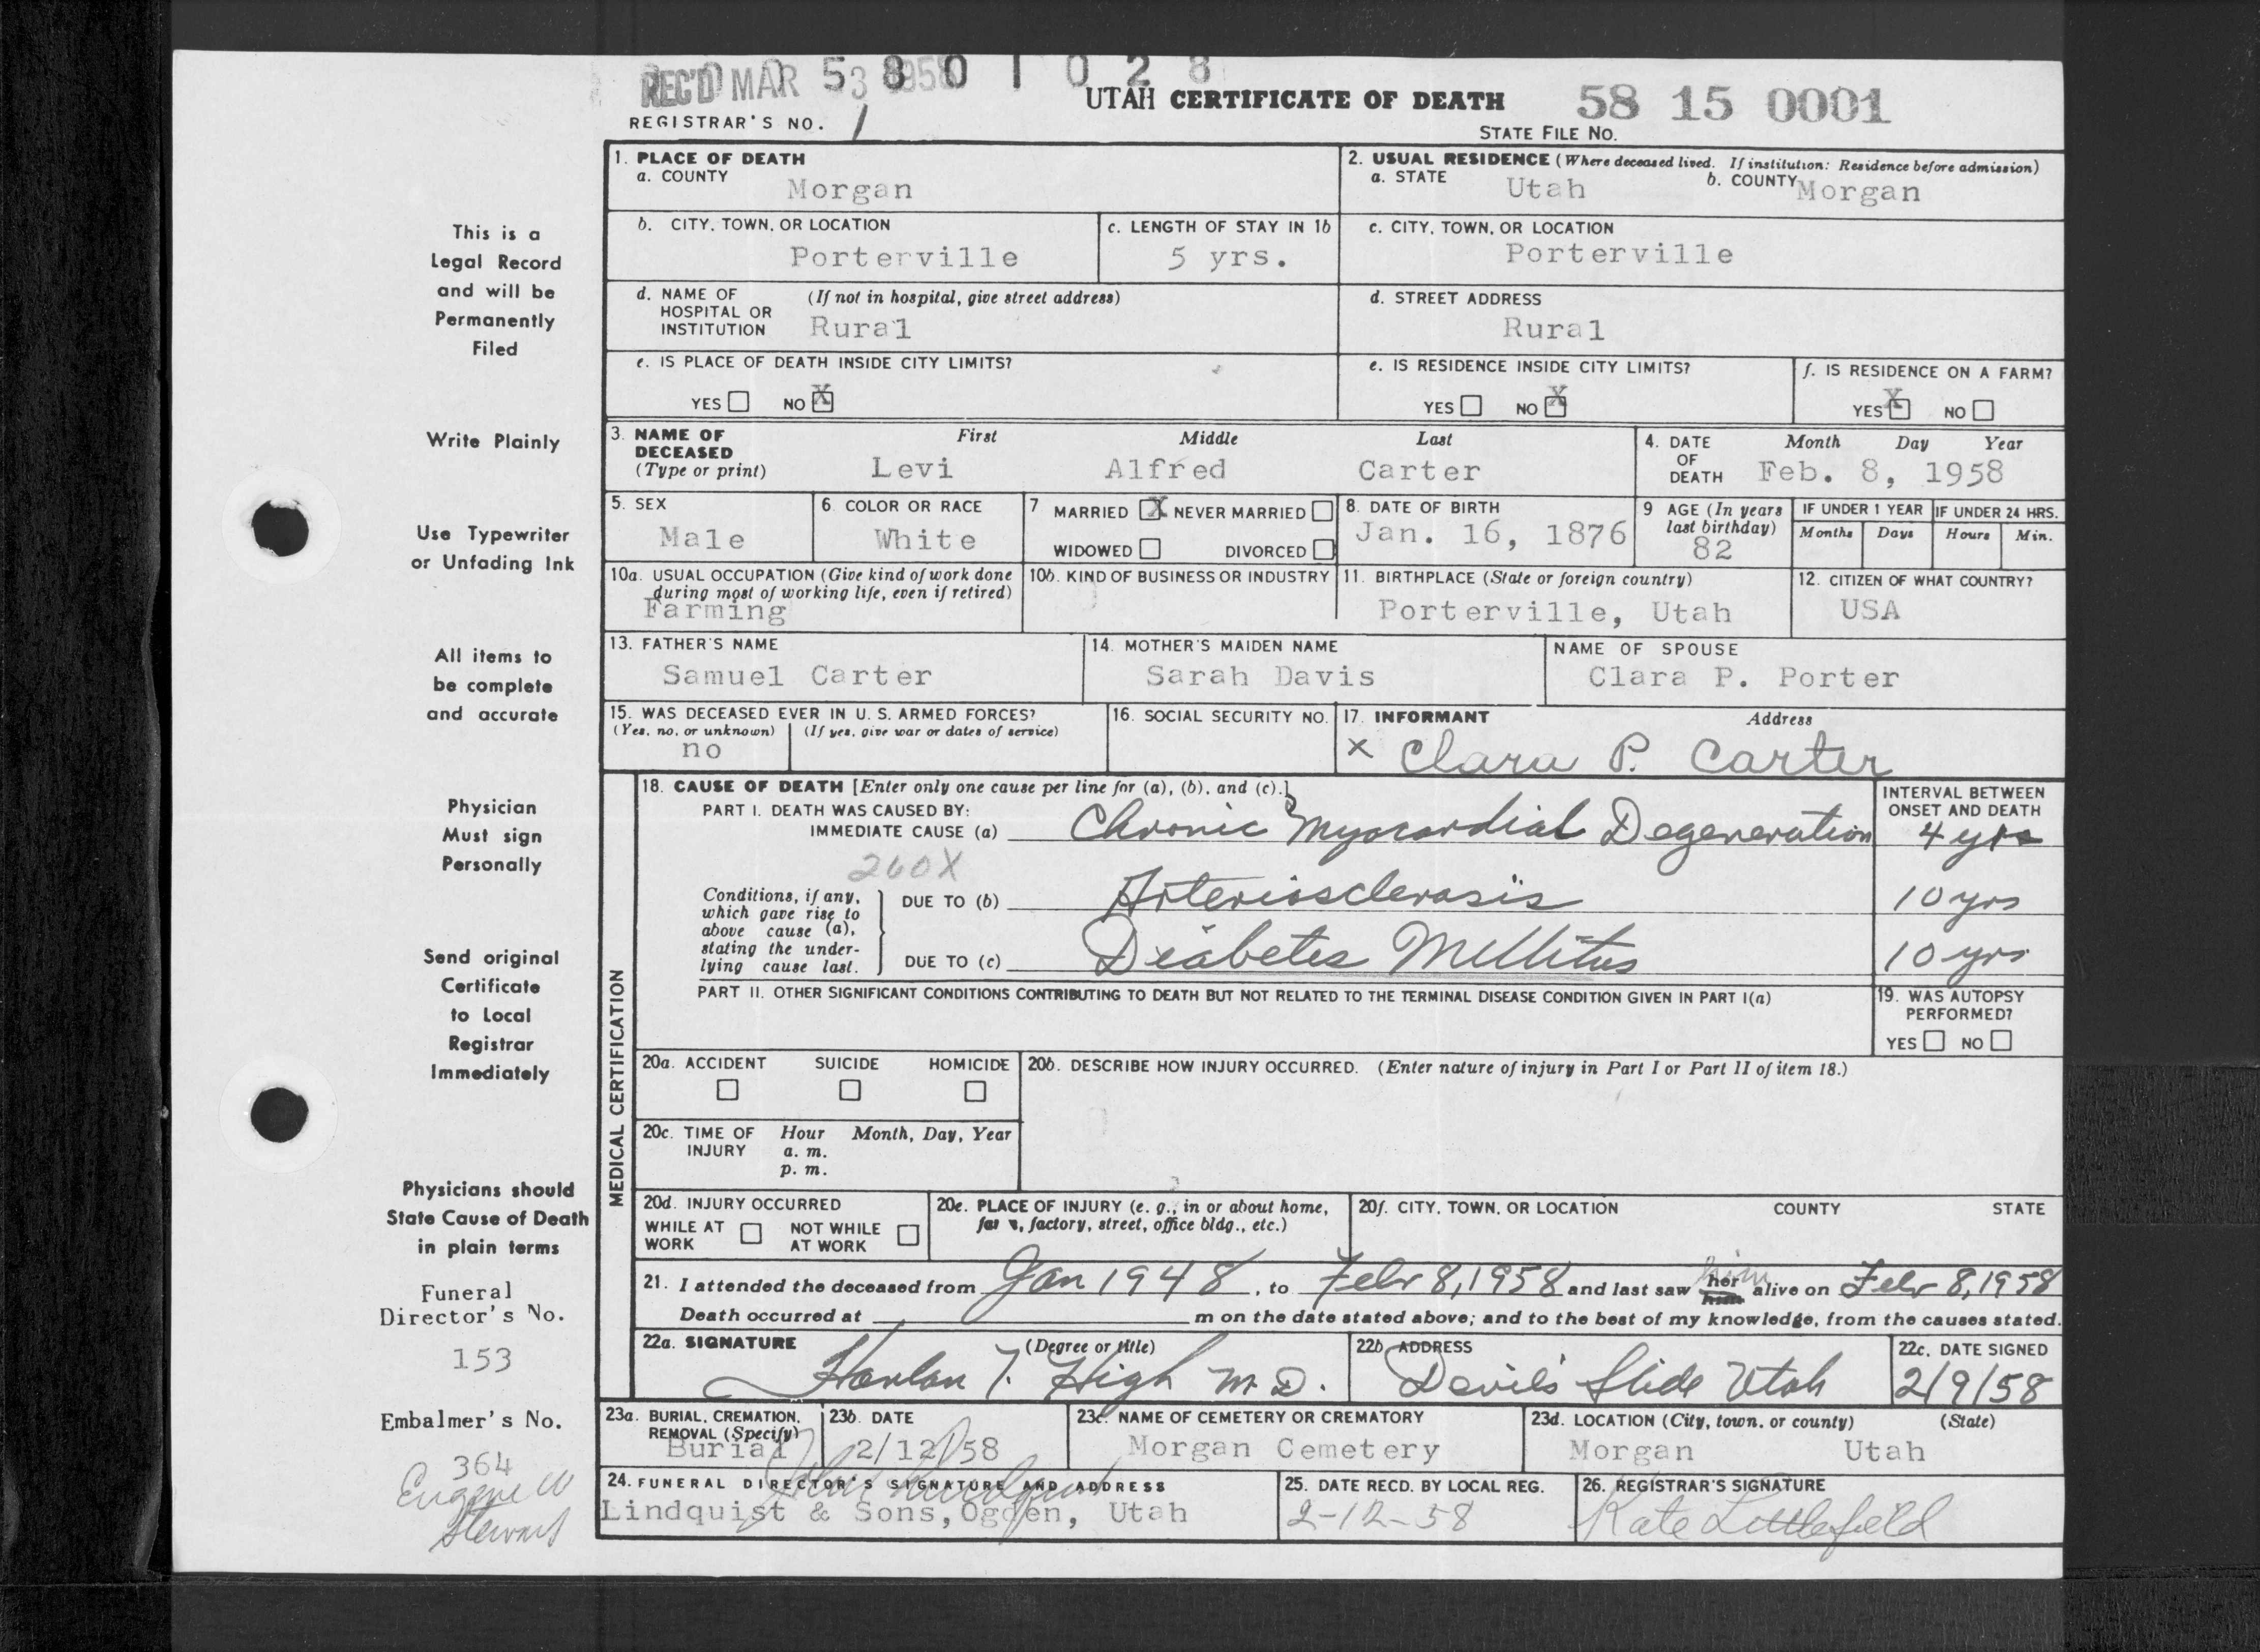 REC'D MAR 3 1958 5 8 0 1 0 2 8
UTAH CERTIFICATE OF DEATH 58 15 0001
REGISTRAR'S NO. 1
STATE FILE NO.
1. PLACE OF DEATH
a. COUNTY Morgan
2. USUAL RESIDENCE (Where deceased lived. If institution: Residence before admission)
a. STATE Utah b. COUNTY Morgan
b. CITY, TOWN, OR LOCATION Porterville
c. LENGTH OF STAY IN 1b 5 yrs.
c. CITY, TOWN, OR LOCATION Porterville
d. NAME OF HOSPITAL OR INSTITUTION (If not in hospital, give street address) Rural
d. STREET ADDRESS Rural
e. IS PLACE OF DEATH INSIDE CITY LIMITS?
YES NO X
e. IS RESIDENCE INSIDE CITY LIMITS?
YES NO X
f. IS RESIDENCE ON A FARM?
YES X NO
3. NAME OF DECEASED (Type or print) First Middle Last
Levi Alfred Carter
4. DATE OF DEATH Month Day Year
Feb. 8, 1958
5. SEX Male
6. COLOR OR RACE White
7 MARRIED X NEVER MARRIED
WIDOWED DIVORCED
8. DATE OF BIRTH Jan. 16, 1876
9 AGE (In years last birthday) 82
IF UNDER 1 YEAR Months Days
IF UNDER 24 HRS. Hours Min.
10a. USUAL OCCUPATION (Give kind of work done during most of working life, even if retired) Farming
10b. KIND OF BUSINESS OR INDUSTRY
11. BIRTHPLACE (State or foreign country) Porterville, Utah
12. CITIZEN OF WHAT COUNTRY? USA
13. FATHER'S NAME Samuel Carter
14. MOTHER'S MAIDEN NAME Sarah Davis
NAME OF SPOUSE Clara P. Porter
15. WAS DECEASED EVER IN U. S. ARMED FORCES?
(Yes, no, or unknown) (If yes, give war or dates of service)
no
16. SOCIAL SECURITY NO.
17. INFORMANT Address
x Clara P. Carter
MEDICAL CERTIFICATION
18. CAUSE OF DEATH [Enter only one cause per line for (a), (b), and (c).]
PART I. DEATH WAS CAUSED BY:
IMMEDIATE CAUSE (a) Chronic Myocardial Degeneration
INTERVAL BETWEEN ONSET AND DEATH
4 yrs
260X
Conditions, if any, which gave rise to above cause (a), stating the underlying cause last.
DUE TO (b) Arteriosclerosis 10 yrs
DUE TO (c) Diabetes Mellitus 10 yrs
PART II. OTHER SIGNIFICANT CONDITIONS CONTRIBUTING TO DEATH BUT NOT RELATED TO THE TERMINAL DISEASE CONDITION GIVEN IN PART I(a)
19. WAS AUTOPSY PERFORMED?
YES NO
20a. ACCIDENT SUICIDE HOMICIDE
20b. DESCRIBE HOW INJURY OCCURRED. (Enter nature of injury in Part I or Part II of item 18.)
20c. TIME OF INJURY Hour Month, Day, Year
a. m.
p. m.
20d. INJURY OCCURRED
WHILE AT WORK NOT WHILE AT WORK
20e. PLACE OF INJURY (e. g., in or about home, farm, factory, street, office bldg., etc.)
20f. CITY, TOWN, OR LOCATION COUNTY STATE
21. I attended the deceased from Jan 1948, to Febr 8, 1958 and last saw her him him alive on Febr 8, 1958
Death occurred at m on the date stated above; and to the best of my knowledge, from the causes stated.
22a. SIGNATURE (Degree or title)
Harlan T. High M.D.
22b. ADDRESS
Devil's Slide Utah
22c. DATE SIGNED
2/9/58
23a. BURIAL, CREMATION, REMOVAL (Specify) Burial
23b. DATE 2/12/58
23c. NAME OF CEMETERY OR CREMATORY Morgan Cemetery
23d. LOCATION (City, town, or county) (State)
Morgan Utah
24. FUNERAL DIRECTOR'S SIGNATURE AND ADDRESS
John Lindquist
Lindquist & Sons, Ogden, Utah
25. DATE RECD. BY LOCAL REG.
2-12-58
26. REGISTRAR'S SIGNATURE
Kate Littlefield
This is a
Legal Record
and will be
Permanently
Filed
Write Plainly
Use Typewriter
or Unfading Ink
All items to
be complete
and accurate
Physician
Must sign
Personally
Send original
Certificate
to Local
Registrar
Immediately
Physicians should
State Cause of Death
in plain terms
Funeral
Director's No.
153
Embalmer's No.
364
Eugene W
Stewart